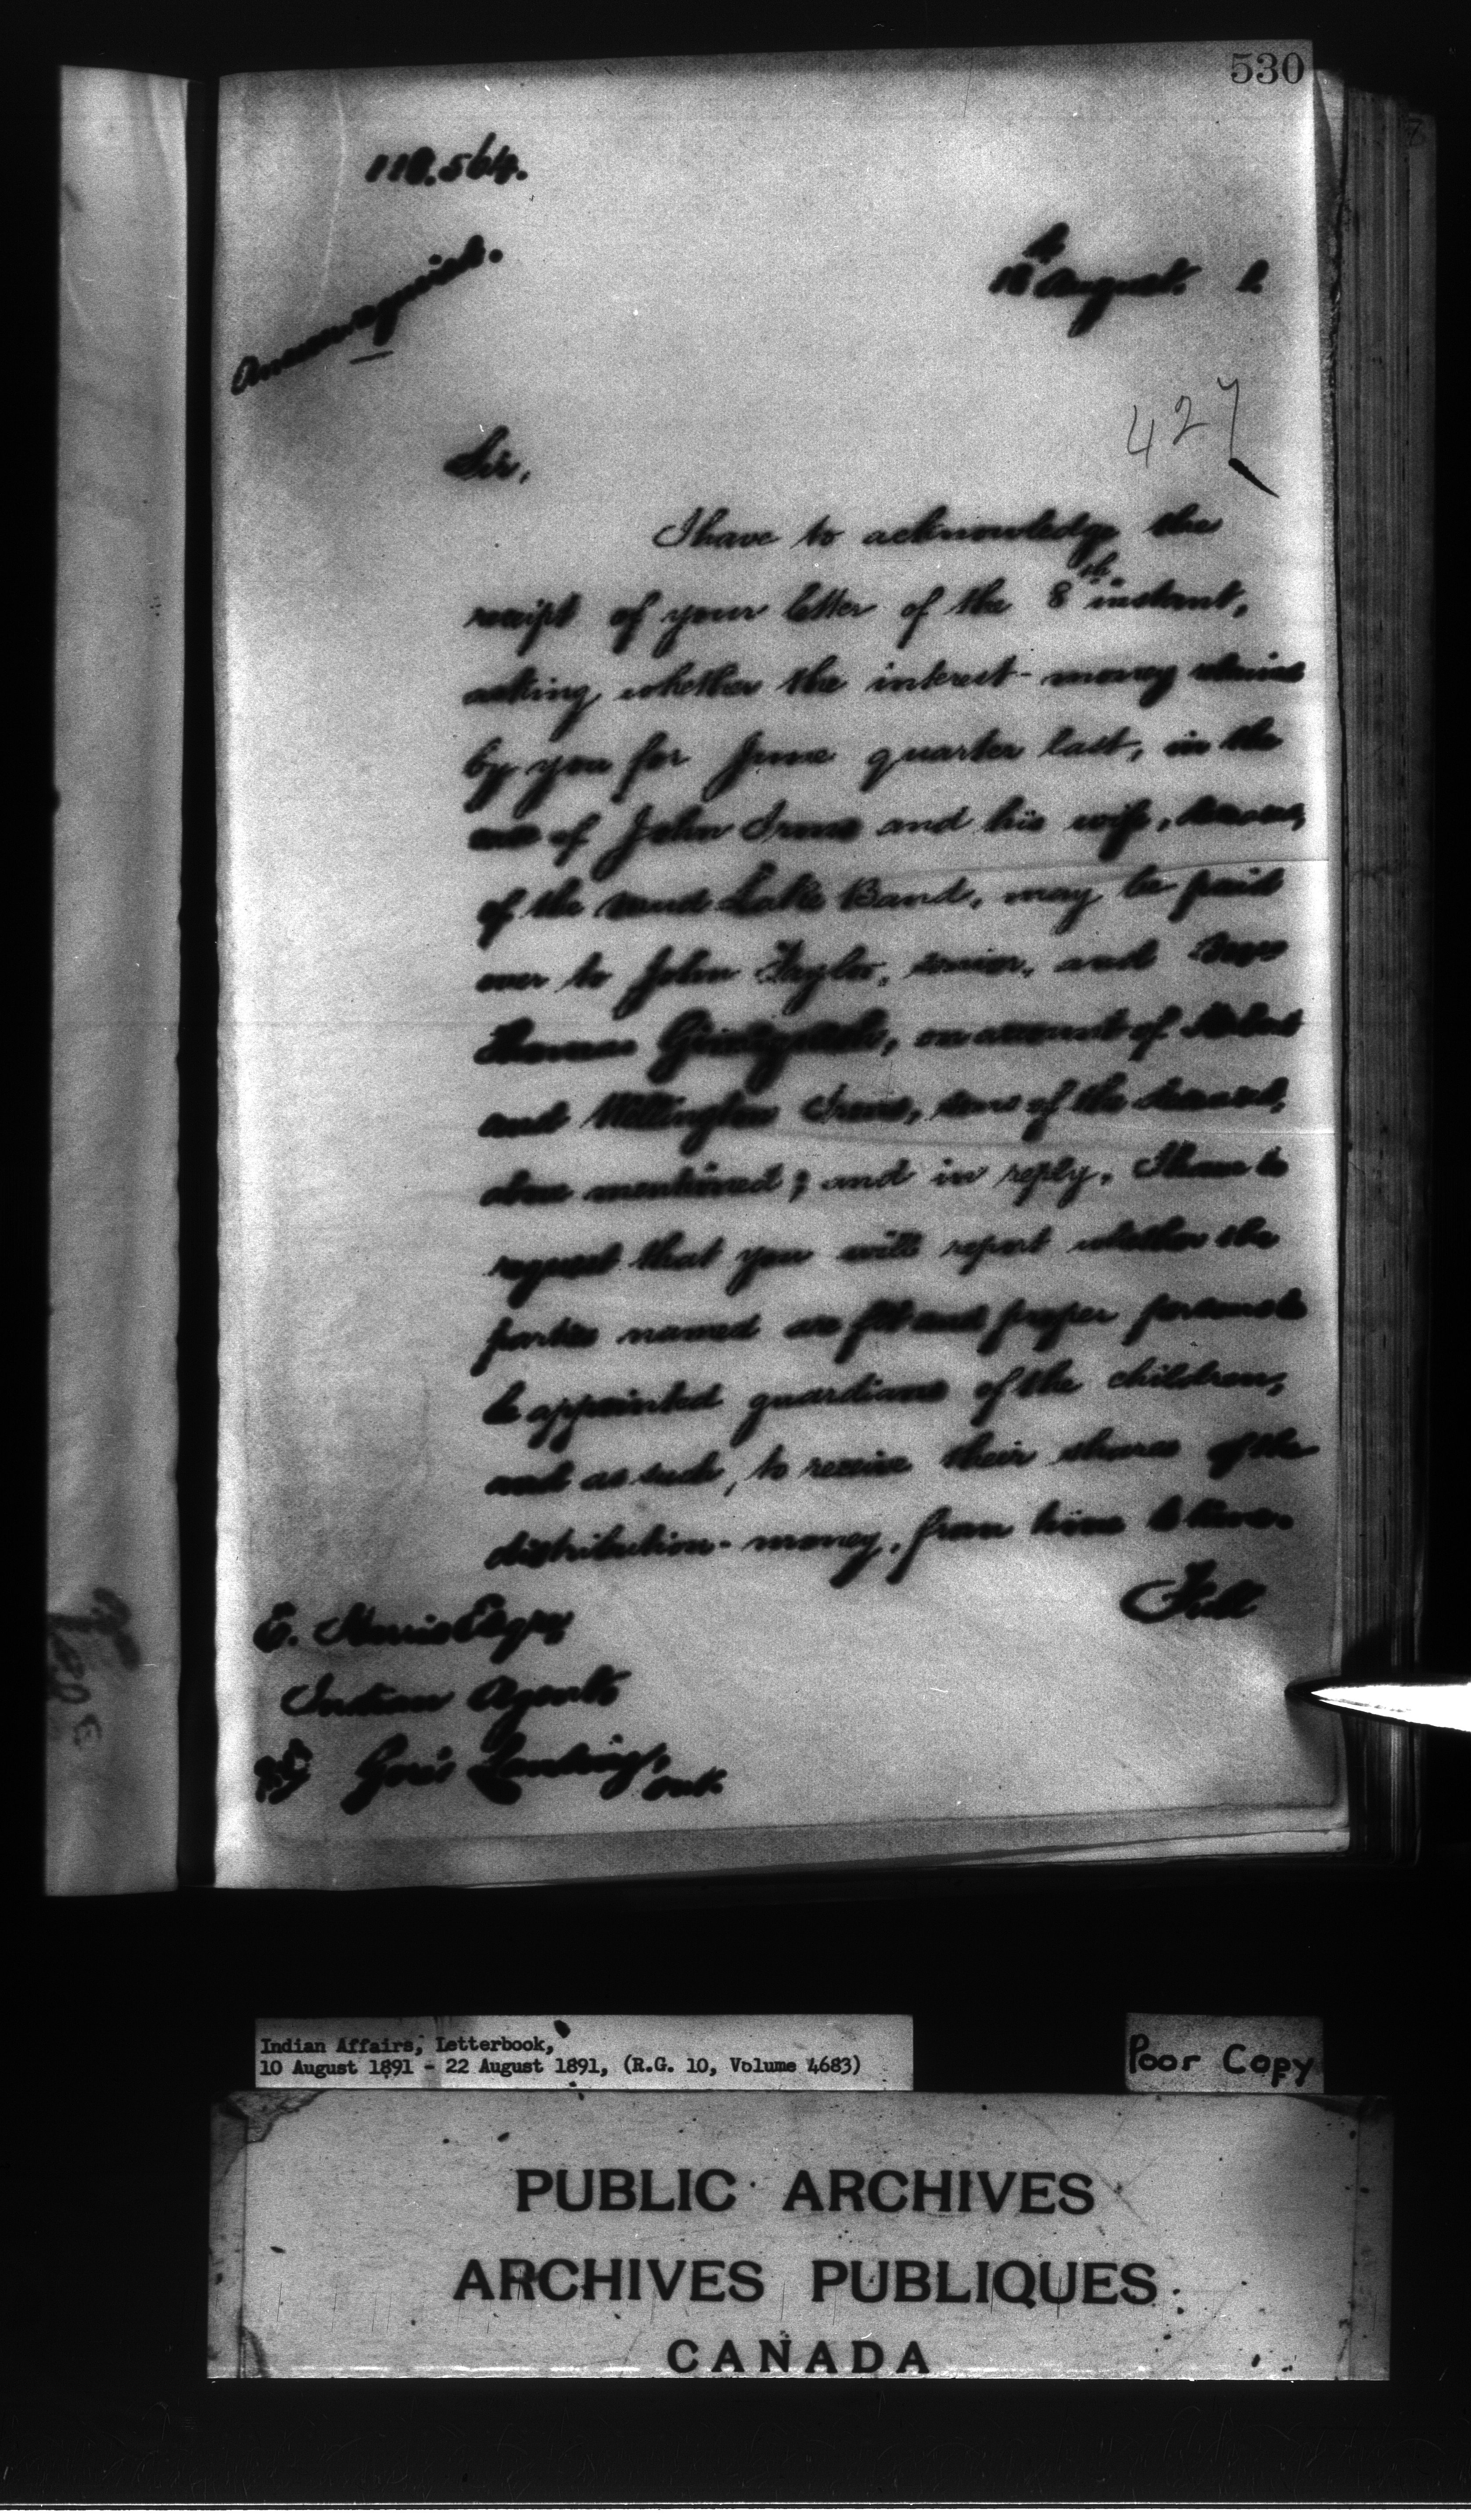 530
110.564.
Answer required.
18th August. 1.
427
Sir,
I have to acknowledge the
receipt of your letter of the 8th instant,
asking whether the interest-money
by you for June quarter last, in the
case of John Irons and his wife,
of the Mud Lake Band, may be paid
over to John Taylor, senior, and
Thomas on account of Robert
and Wellington Irons, sons of the deceased,
above mentioned; and in reply, I have to
request that you will report whether the
parties named are fit and proper persons to
be appointed guardians of the children,
and as such, to receive their shares of the
distribution-money, from time to time.
E. Harris Esqre,
Indian Agent,
Gore's Landing, Ont.
Indian Affairs, Letterbook,
10 August 1891 - 22 August 1891, (R.G. 10, Volume 4683)
Poor Copy
PUBLIC ARCHIVES
ARCHIVES PUBLIQUES
CANADA